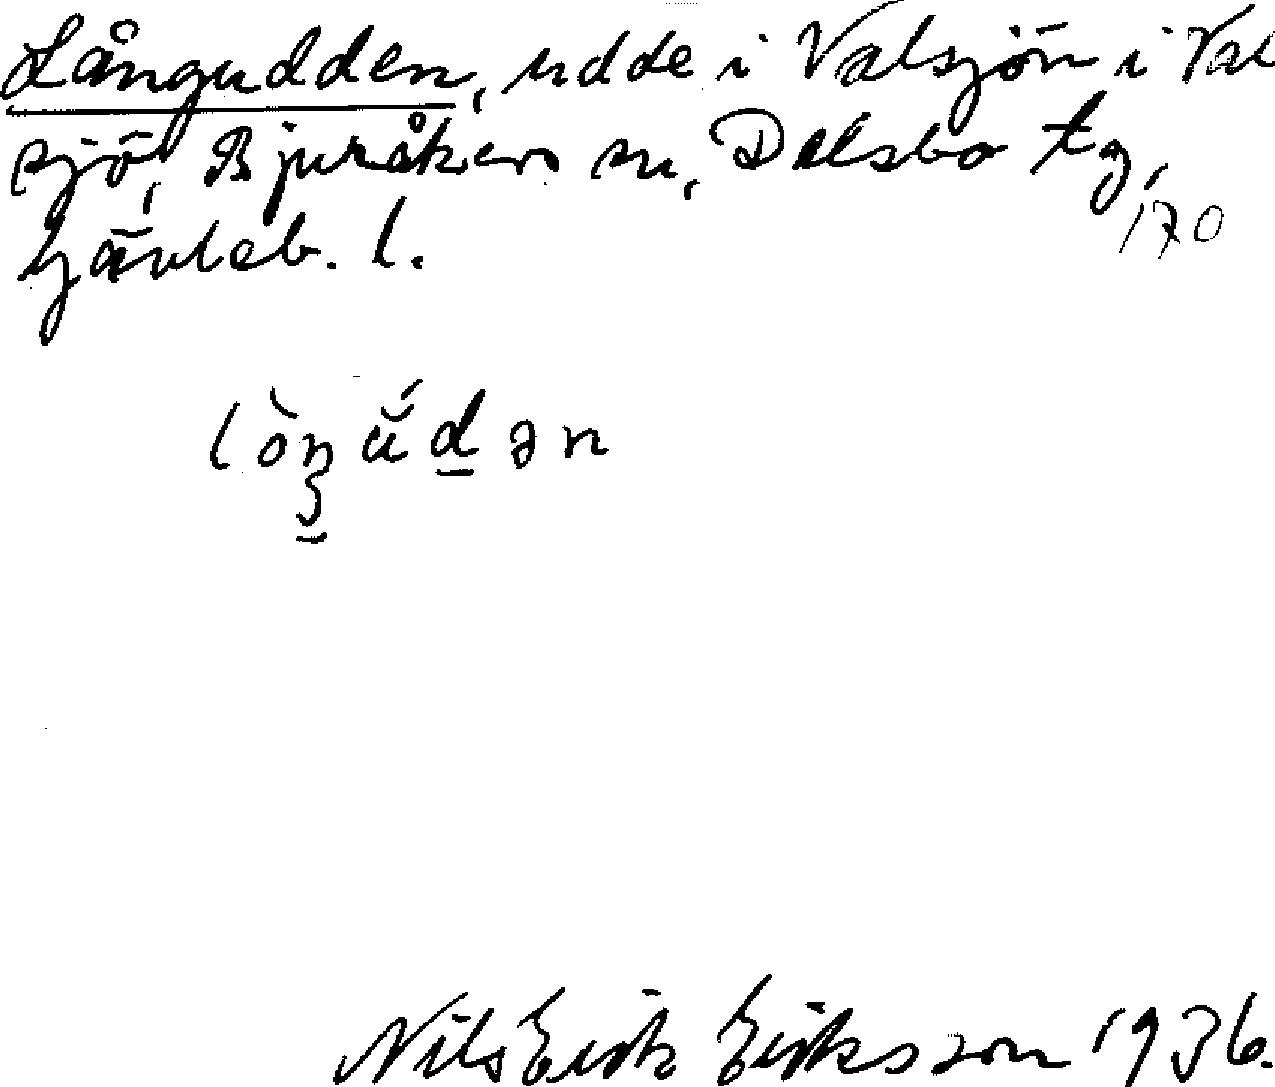 Långudden, udde i Valsjön i Val
sjö, Bjuråkers sn, Delsbo tg,
170
Gävleb. l.
lòŋŭ́dən
Nils Erik Eriksson 1936.